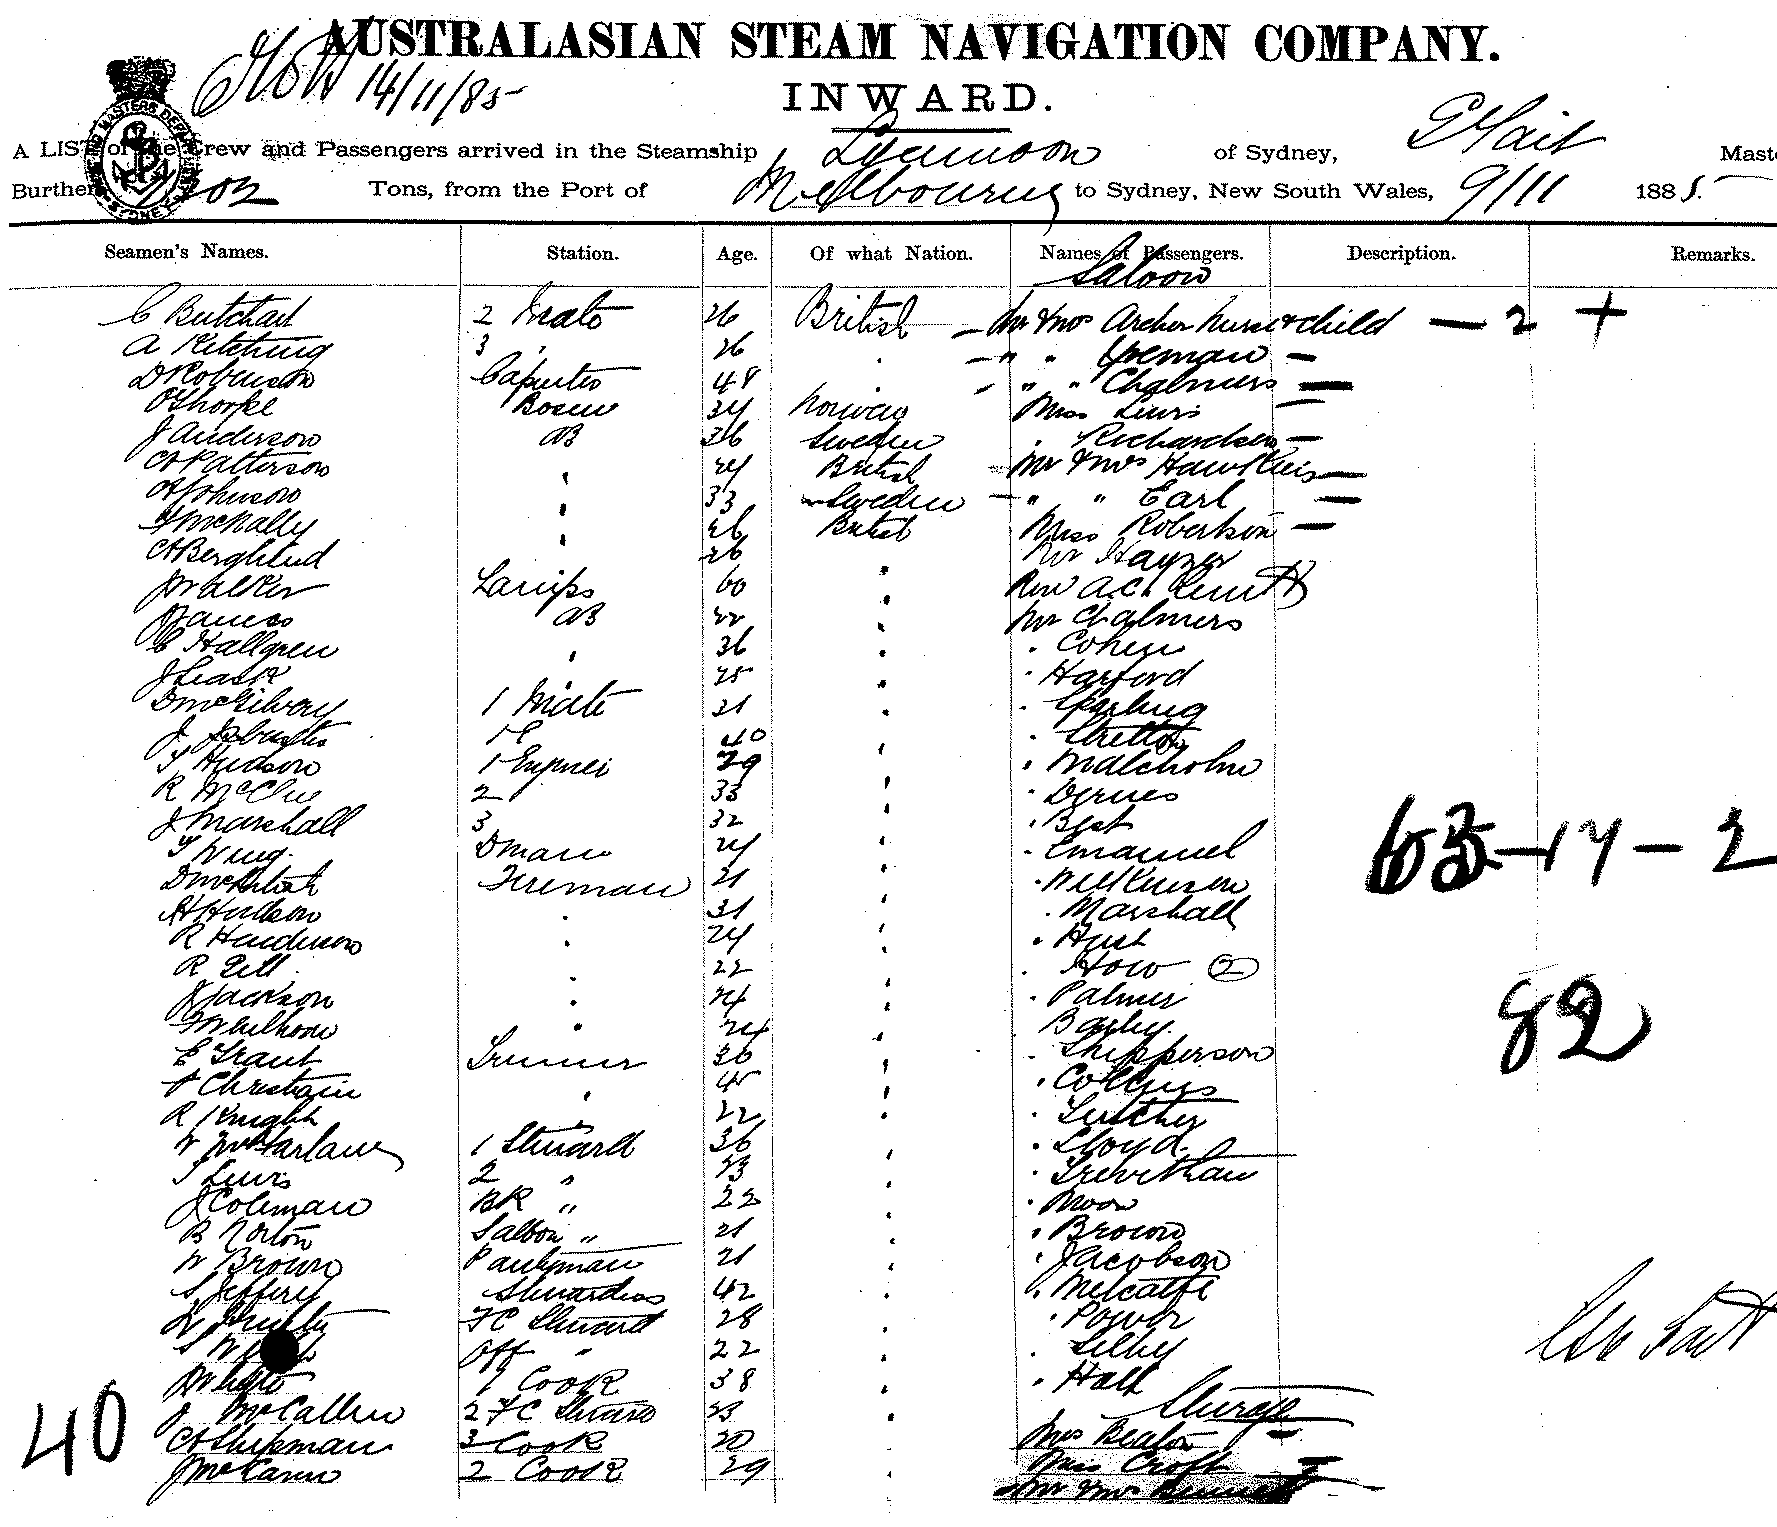 AUSTRALASIAN STEAM NAVIGATION COMPANY.
14/11/85
INWARD.
A LIST of the Crew and Passengers arrived in the Steamship of Sydney, Maste
Burthen Tons, from the Port of Melbourne to Sydney, New South Wales, 9/11 1885.
Seamen's Names. Station. Age. Of what Nation. Names of Passengers. Description. Remarks.
Saloon
C Butchart 2 Mate 26 British Mr & Mrs Archer nurse & child — 2 +
A Kitching 3 " 26 " " " Yeman —
D Robinson 48 " " " Chalmers —
O Thorpe Bosun 34 Norway Miss Lewis —
J Anderson AB 36 Sweden " Richardson —
A Patterson " 24 British Mr & Mrs Hawkins —
A Johnson " 33 Sweden " " Earl —
McNally " 26 British Miss Robertson —
A Berglund " 26 Mr Hayner
J Walker Lamps 60 " Rev A.C.
James AB 22 " Mr Chalmers
C Hallgren " 36 " " Cohen
J Leask " 25 " " Harford
D McGilvray 1 Mate 21 " " Sparling
J 40 " " Stretton
T Hudson 1 39 " " Malcholm
R McClue 2 33 " "
J Marshall 3 32 " " Best
T King 24 " " Emanuel
D McIntosh Fireman 21 " " Wilkinson
H Hudson " 31 " " Marshall
R Henderson " 24 " " Hush
R Gill " 22 " " How 2
J Jackson " 24 " " Palmer
" 24 " Barley
E Grant Trimmer 30 " " Shipperson
A Christain " 45 " " Collins
R Knight " 22 " "
W McFarlane 1 Steward 36 " " Lloyd
T Lewis 2 " 23 " " Trevethan
J Coleman BK " 22 " " Moon
B Norton Saloon " 21 " " Brown
W Brown Pantryman 21 " " Jacobson
S Jeffery Stewardess 42 " " Metcalfe
FC Steward 28 " " Power
" 22 " " Selby
1 Cook 38 " " Hall
J McCallum 2 FC Steward 23 " Steerage
A Shipman 3 Cook 20 " Mrs Beaton —
J McCann 2 Cook 29 " Miss Croft —
Mr & Mrs
63 — 14 — 2
82
40